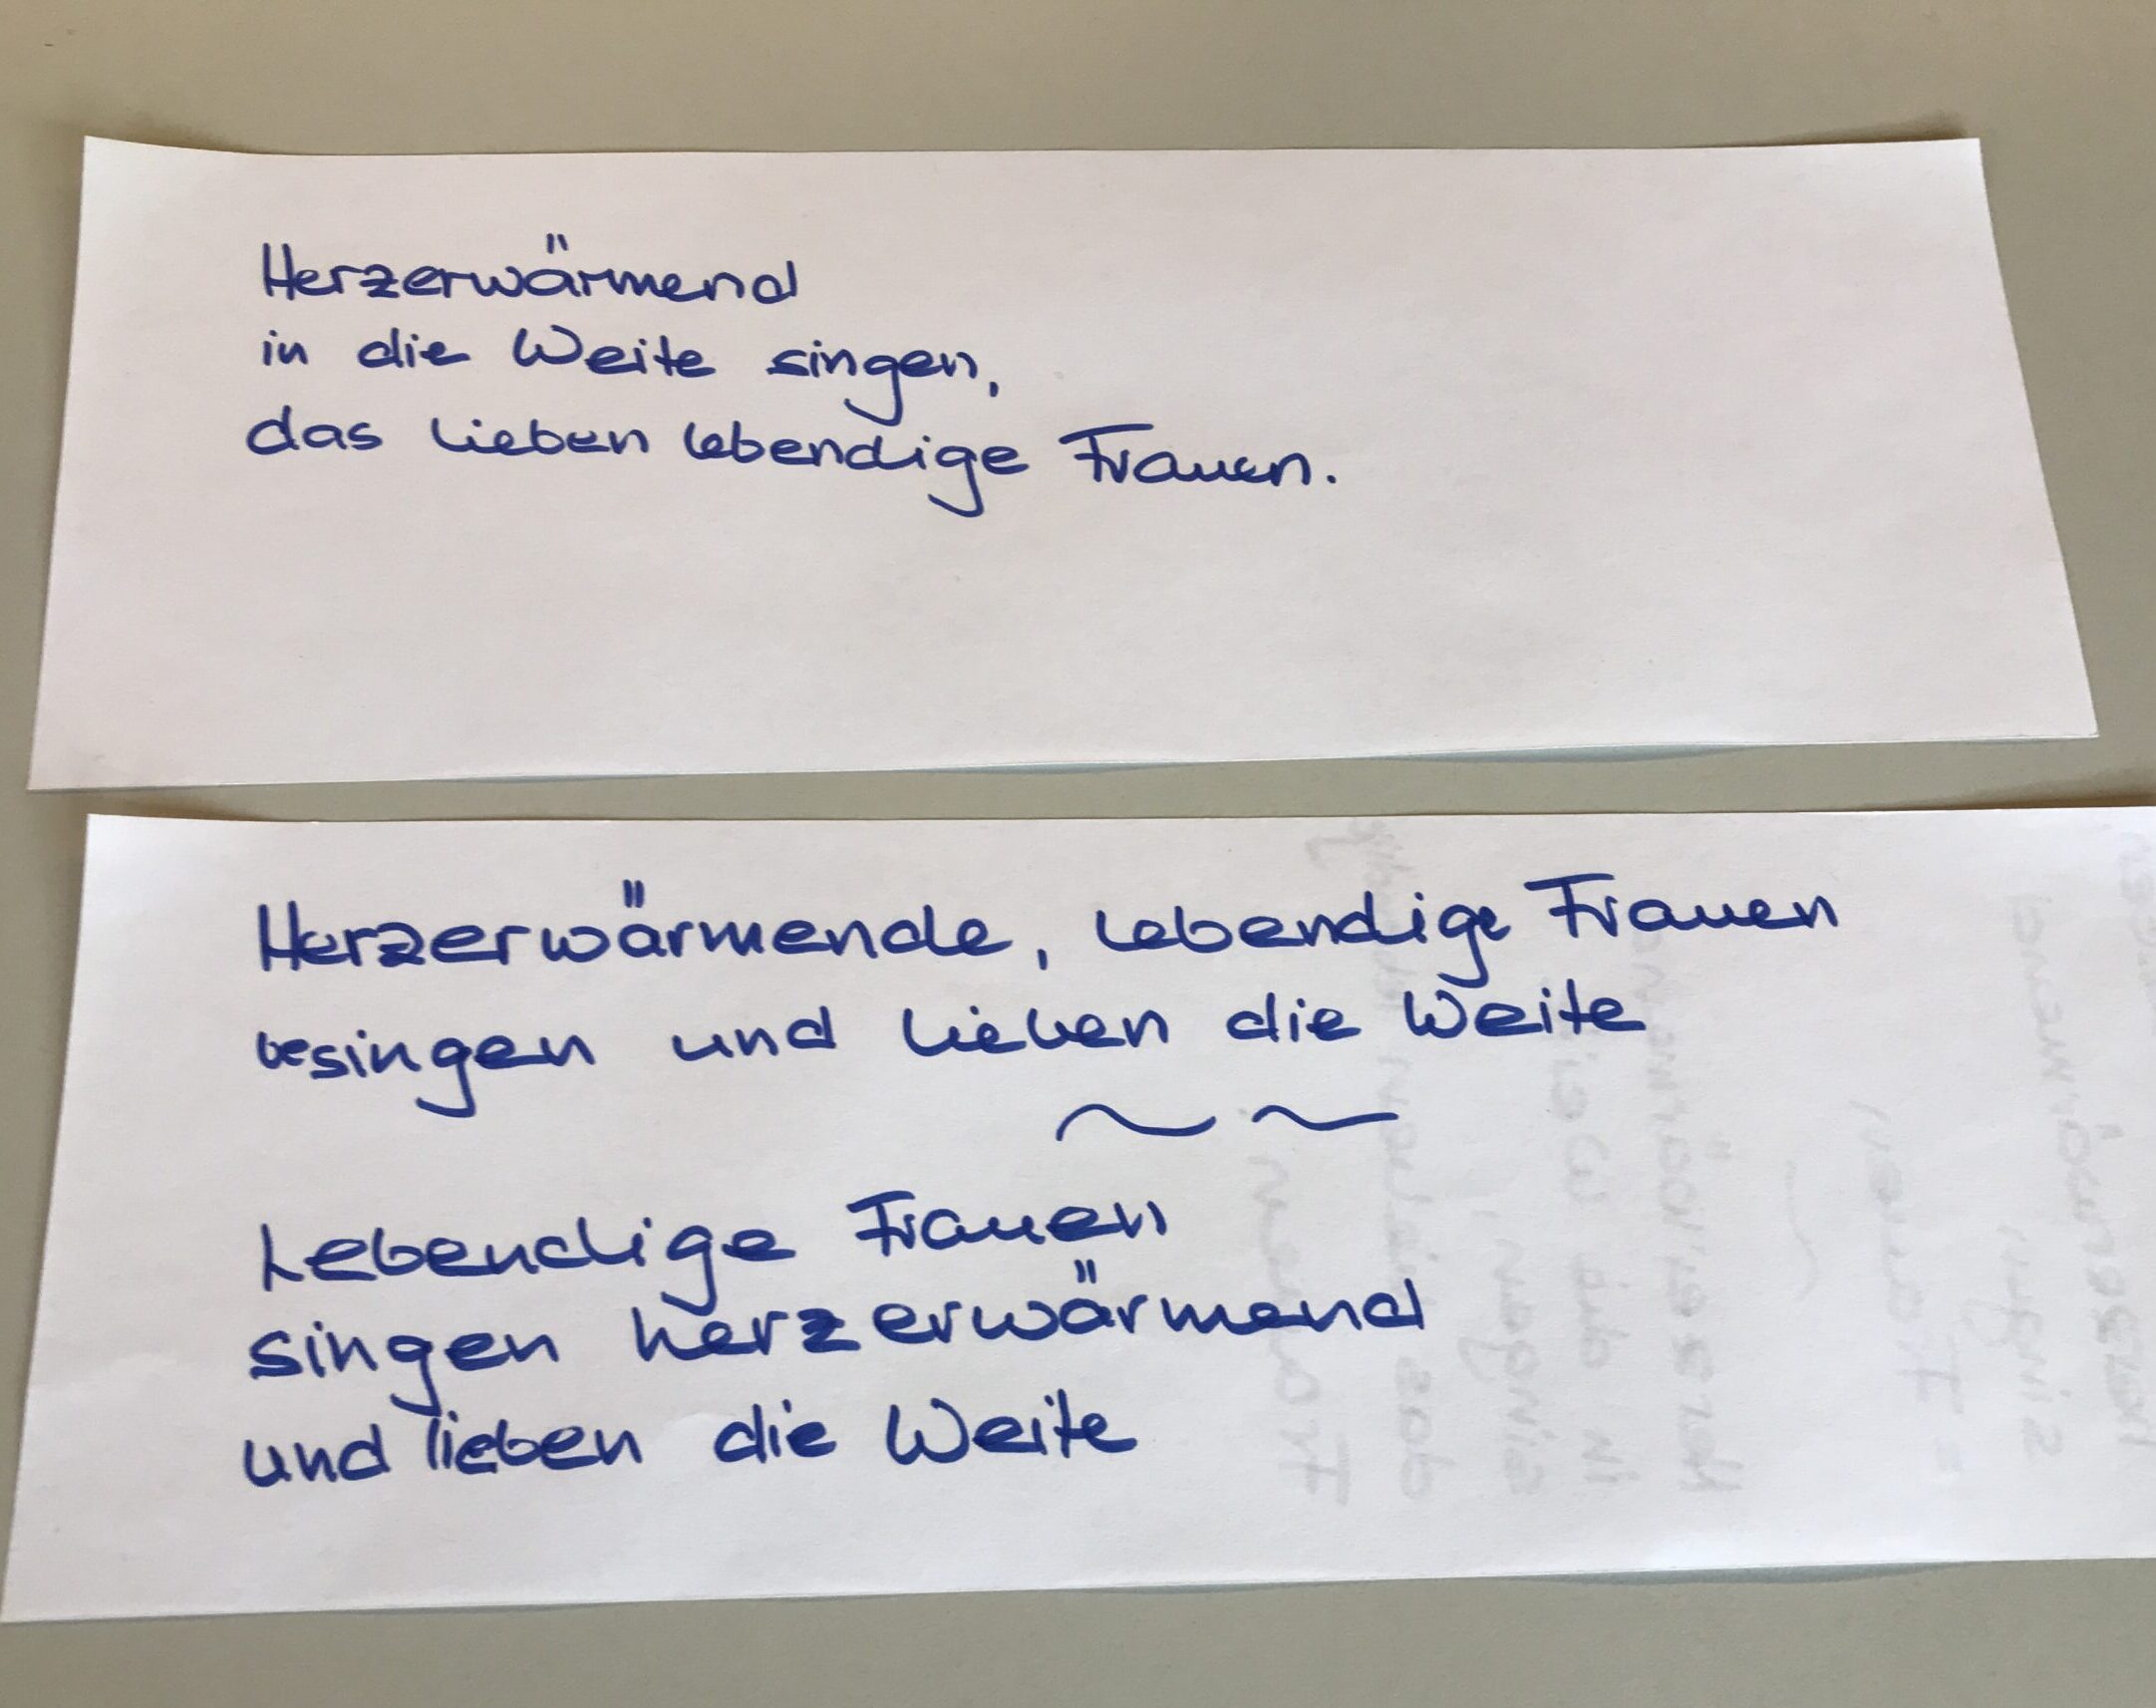 Herzerwärmend
in die Weite singen,
das lieben lebendige Frauen.
Herzerwärmende, lebendige Frauen
besingen und lieben die Weite
~ ~
Lebendige Frauen
singen herzerwärmend
und lieben die Weite